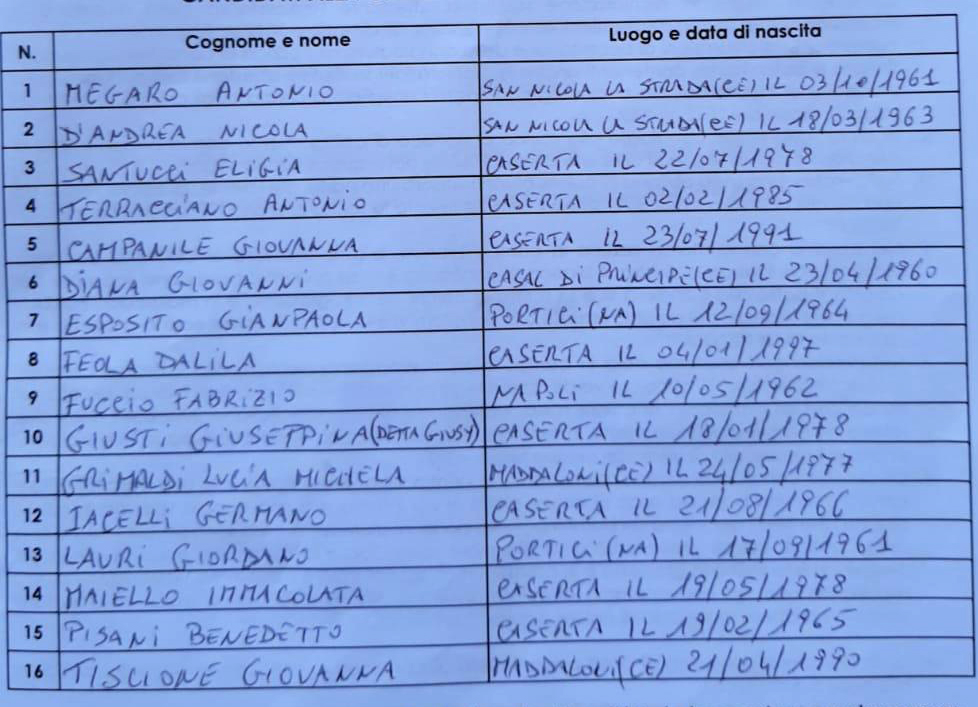 N. Cognome e nome Luogo e data di nascita
1 MEGARO ANTONIO SAN NICOLA LA STRADA(CE) IL 03/10/1961
2 D'ANDREA NICOLA SAN NICOLA LA STRADA(CE) IL 18/03/1963
3 SANTUCCI ELIGIA CASERTA IL 22/07/1978
4 TERRACCIANO ANTONIO CASERTA IL 02/02/1985
5 CAMPANILE GIOVANNA CASERTA IL 23/07/1991
6 DIANA GIOVANNI CASAL DI PRINCIPE(CE) IL 23/04/1960
7 ESPOSITO GIANPAOLA PORTICI (NA) IL 12/09/1964
8 FEOLA DALILA CASERTA IL 04/01/1997
9 FUCCIO FABRIZIO NAPOLI IL 10/05/1962
10 GIUSTI GIUSEPPINA(DETTA GIUSY) CASERTA IL 18/01/1978
11 GRIMALDI LUCIA MICHELA MADDALONI(CE) IL 24/05/1977
12 IACELLI GERMANO CASERTA IL 21/08/1966
13 LAURI GIORDANO PORTICI (NA) IL 17/09/1961
14 MAIELLO IMMACOLATA CASERTA IL 19/05/1978
15 PISANI BENEDETTO CASERTA IL 19/02/1965
16 TISCIONE GIOVANNA MADDALONI(CE) 21/04/1990